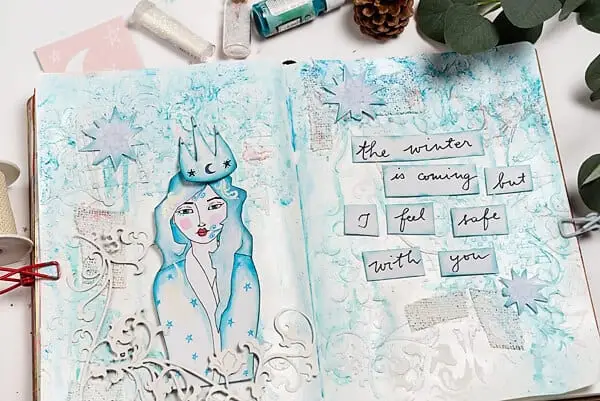 the winter
is coming but
I feel safe
with you